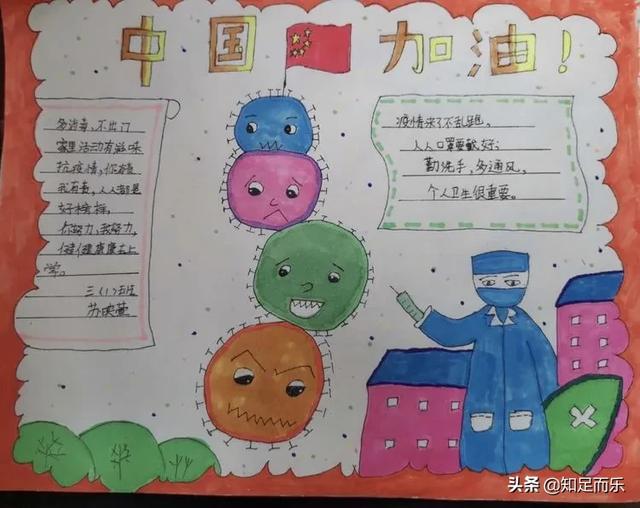 中国加油!
多消毒、不出门
家里活动有滋味
抗疫情,你棒
我有责,人人都是
好榜样。
你努力,我努力,
健健康康去上
学。
三(1)班
疫情来了不乱跑。
人人口罩要戴好;
勤洗手,多通风。
个人卫生很重要。
头条 @知足而乐